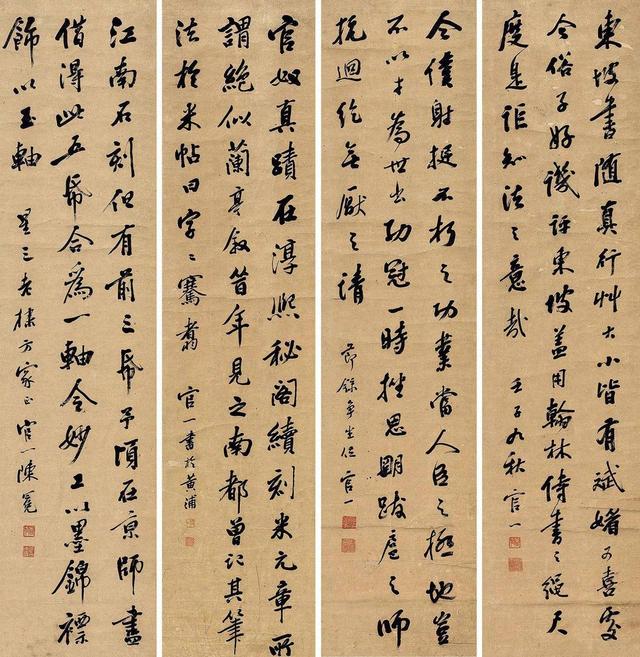 東坡書隨真行艸大小皆有斌媚可喜處
今俗子好譏評東坡蓋用翰林侍書之繩尺
度是詎知法之意哉 壬子九秋官一
今僕射挺不朽之功業當人臣之極地豈
不以才為世出功冠一時挫思明跋扈之師
抗迴紇無厭之請 節錄爭坐位官一
官奴真蹟在淳熙秘閣續刻米元章所
謂絕似蘭亭敘昔年見之南都曾記其筆
法於米帖曰字〻騫翥 官一書於黃浦
江南石刻但有前三帋予頃在京師盡
借得此五帋合爲一軸令妙工以墨錦褾
飾以玉軸 星三老棣方家正官一陳冕